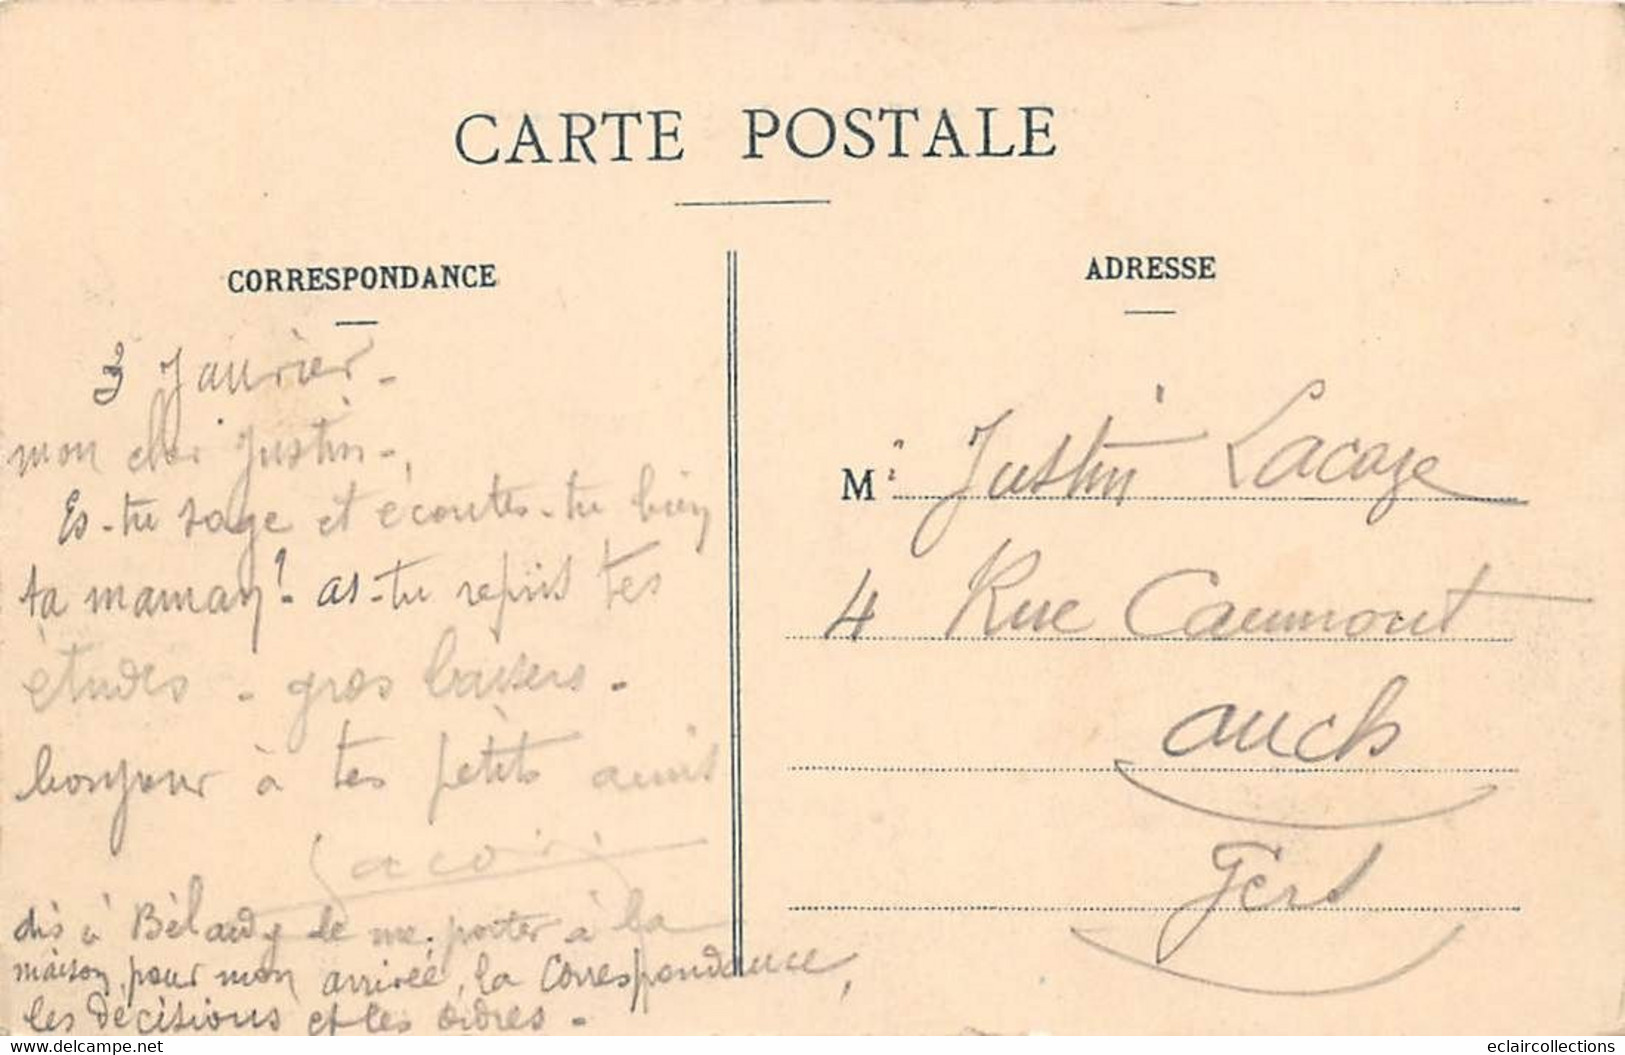 CARTE POSTALE
CORRESPONDANCE
3 Janvier -
mon cher Justin -,
Es-tu sage et écoutes-tu bien
ta maman ? - as-tu repris tes
études - gros baisers -
bonjour à tes petits amis
dis à de me porter à la
maison, pour mon arrivée, la Correspondance,
les décisions et les ordres -
ADRESSE
Mr Justin Lacaze
4 Rue Caumont
Auch
Gers
delcampe.net
eclaircollections